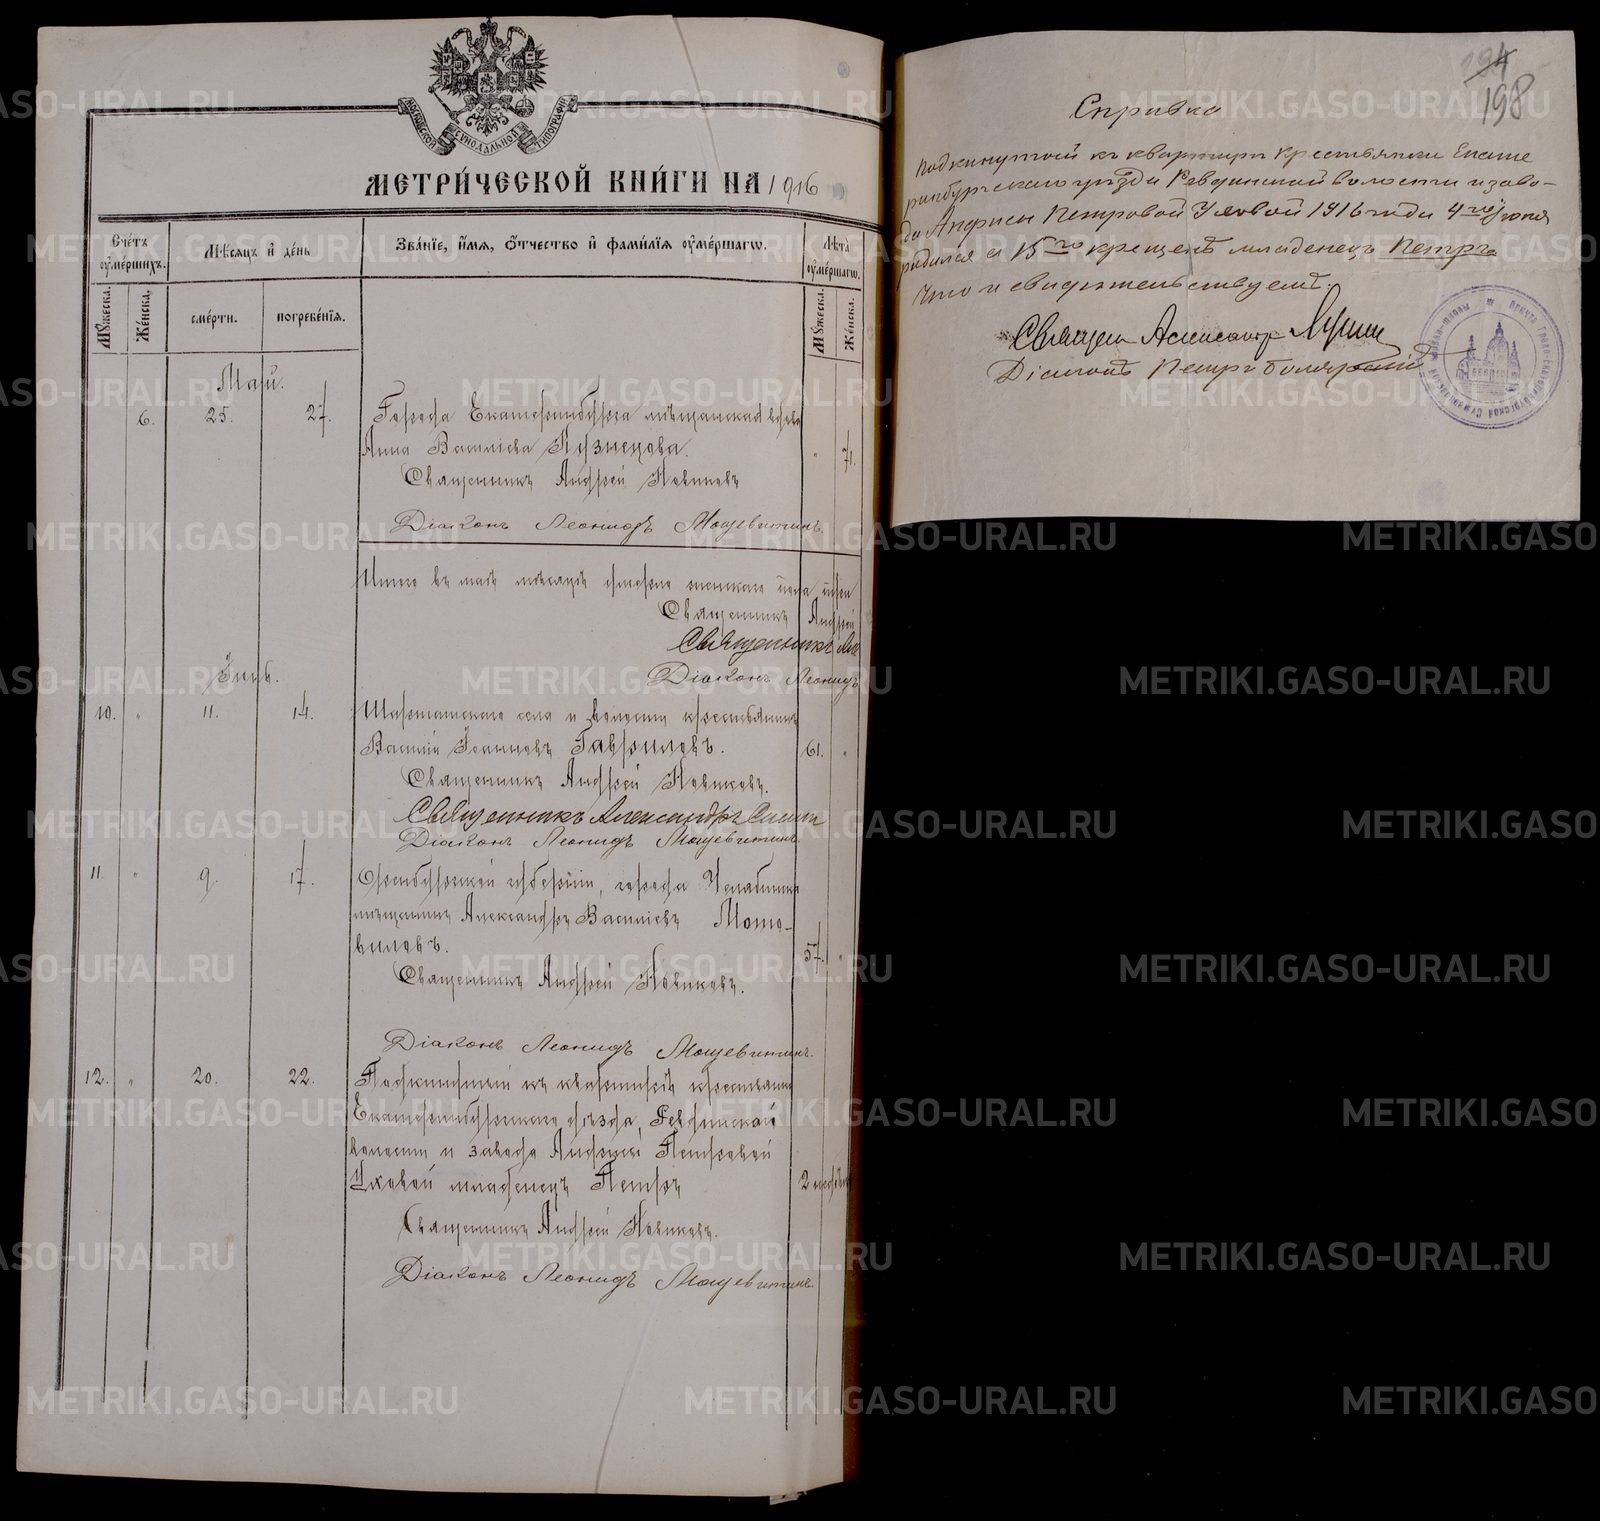 МОСКОВСКОЙ СѴНОДАЛЬНОЙ ТИПОГРАФІИ
МЕТРИ́ЧЕСКОЙ КНИ́ГИ НА 1916
Сче́тъ ᲂу҆ме́ршихъ.
Мѣ́сяцъ и҆ де́нь
Зва́нїе, и҆́мя, ѻ҆́тчество и҆ фами́лїя ᲂу҆ме́ршагѡ.
Лѣта̀ ᲂу҆ме́ршагѡ.
Мꙋ́жеска.
Же́нска.
сме́рти.
погребе́нїя.
Мꙋ́жеска.
Же́нска.
Май.
6. 25. 27. Города Екатеринбурга мѣщанская вдова
Анна Васильева Кузнецова. " 71.
Священникъ Андрей Новиковъ
Діаконъ Леонидъ Мощевитинъ.
Итого въ маѣ мѣсяцѣ умерло женскаго пола
Священникъ Андрей
Священникъ
Діаконъ Леонидъ
Іюнь.
10. " 11. 14. Шарташскаго села и волости крестьянинъ
Василій Іоанновъ Гавриловъ. 61. "
Священникъ Андрей Новиковъ.
Священникъ Александръ
Діаконъ Леонидъ Мощевитинъ.
11. " 9. 17. Оренбургской губерніи, города Челябинска
мѣщанинъ Александръ Васильевъ Мото-
виловъ. 57. "
Священникъ Андрей Новиковъ.
Діаконъ Леонидъ Мощевитинъ.
12. " 20. 22. Подкинутый къ квартирѣ крестьянки
Екатеринбургскаго уѣзда, Ревдинской
волости и завода Анфисы Петровой
Уховой младенецъ Петръ 2 недѣли
Священникъ Андрей Новиковъ.
Діаконъ Леонидъ Мощевитинъ.
194
198
Справка
Подкинутый къ квартирѣ крестьянки Екате
ринбургскаго уѣзда Ревдинской волости и заво-
да Анфисы Петровой Уховой 1916 года 4го Іюня
родился а 15го крещенъ младенецъ Петръ
что и свидѣтельствуемъ.
Священ Александръ
Діаконъ Петръ
METRIKI.GASO-URAL.RU